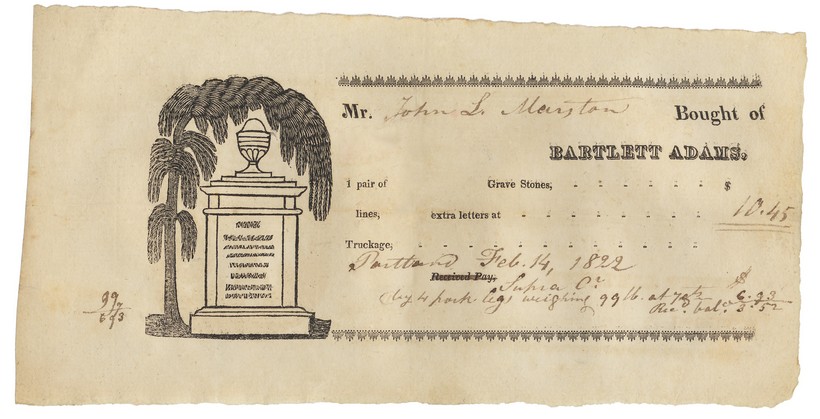 Mr. John L. Marston Bought of
BARTLETT ADAMS.
1 pair of Grave Stones, $
lines, extra letters at 10.45
Truckage,
Portland Feb. 14, 1822
Received Pay,
Supra Cr $
by 4 pork legs weighing 99 lb. at 7cts 6.93
Rec. bal. 3.52
99
7
693